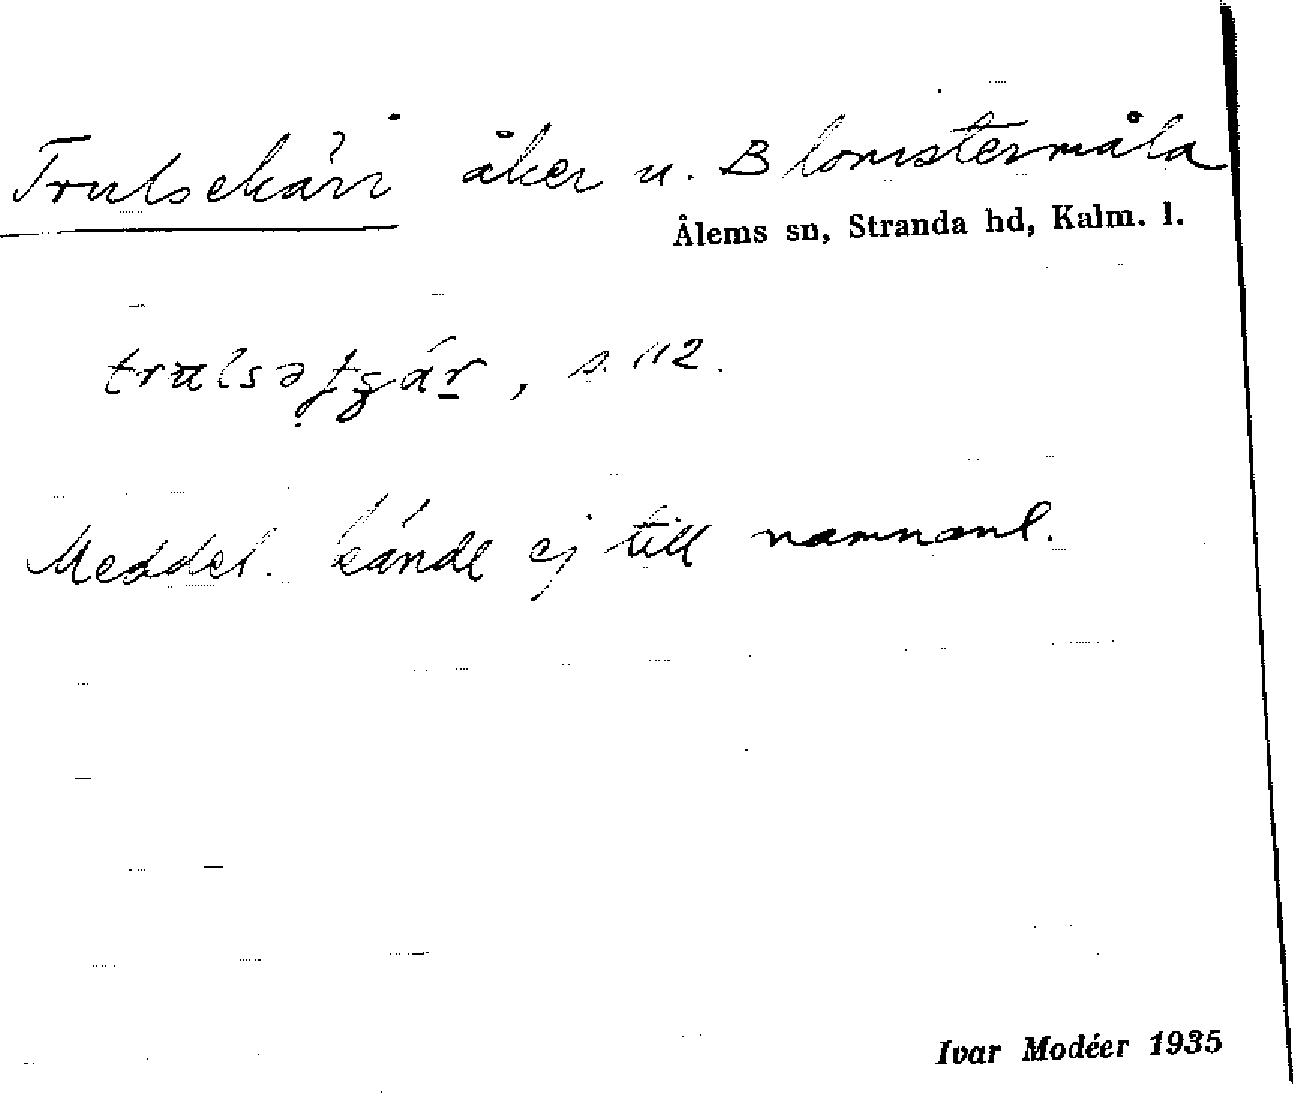 Trulsekärr åker u. Blomstermåla
Ålems sn, Stranda hd, Kalm. l.
s. 112.
Meddel. kände ej till namnanl.
Ivar Modéer 1935